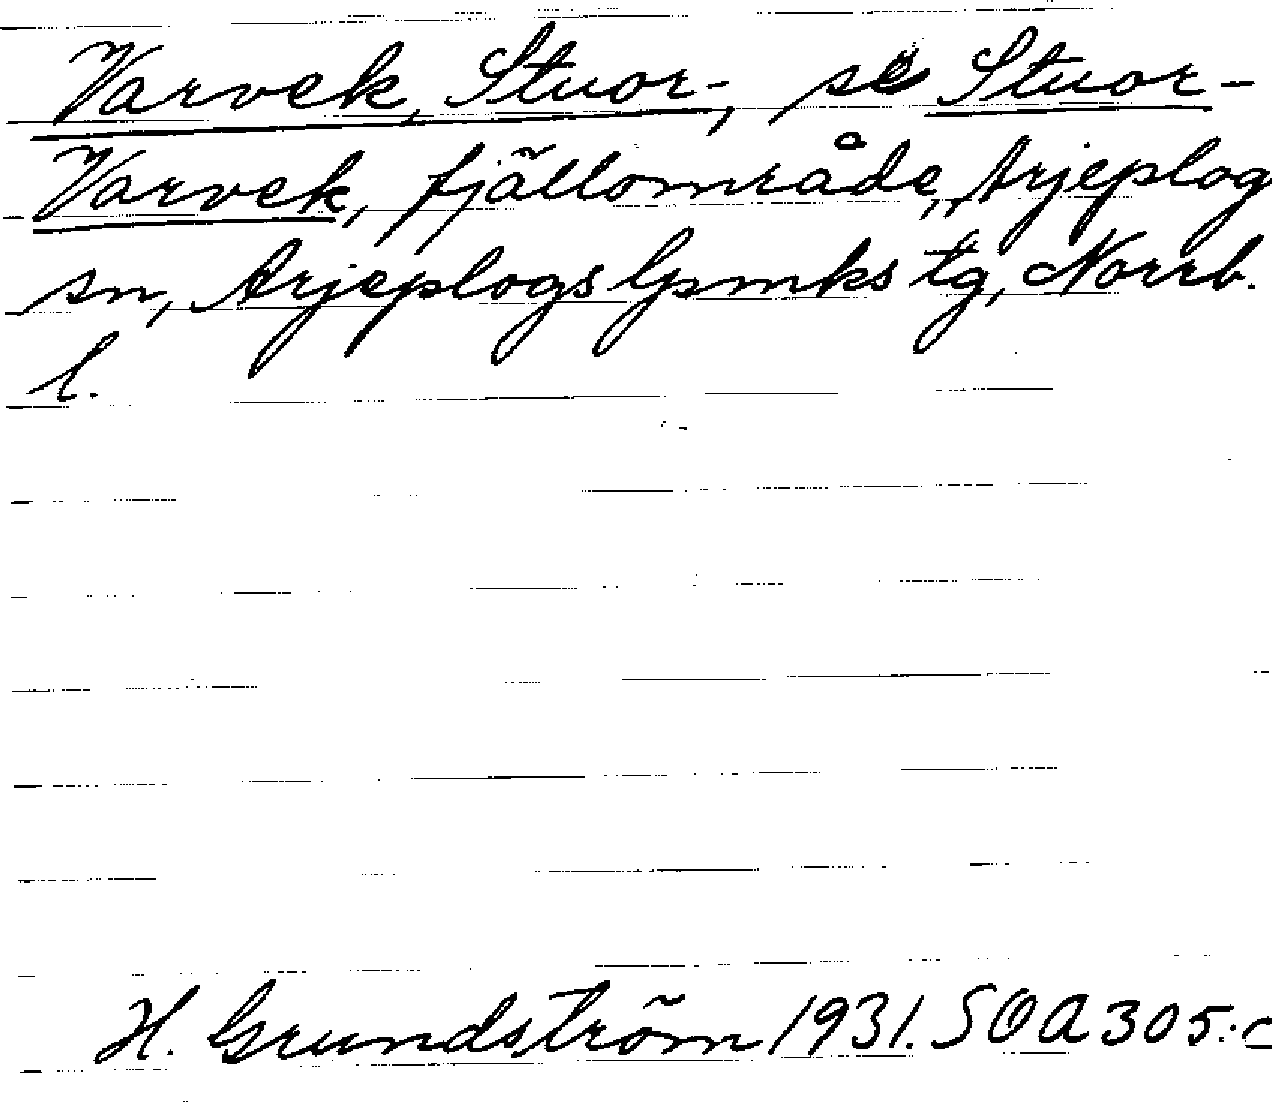 Varvek, Stuor-, se Stuor-
Varvek, fjällområde, Arjeplog
sn, Arjeplogs lpmks tg, Norrb.
l.
H. Grundström 1931. SOA 305:c